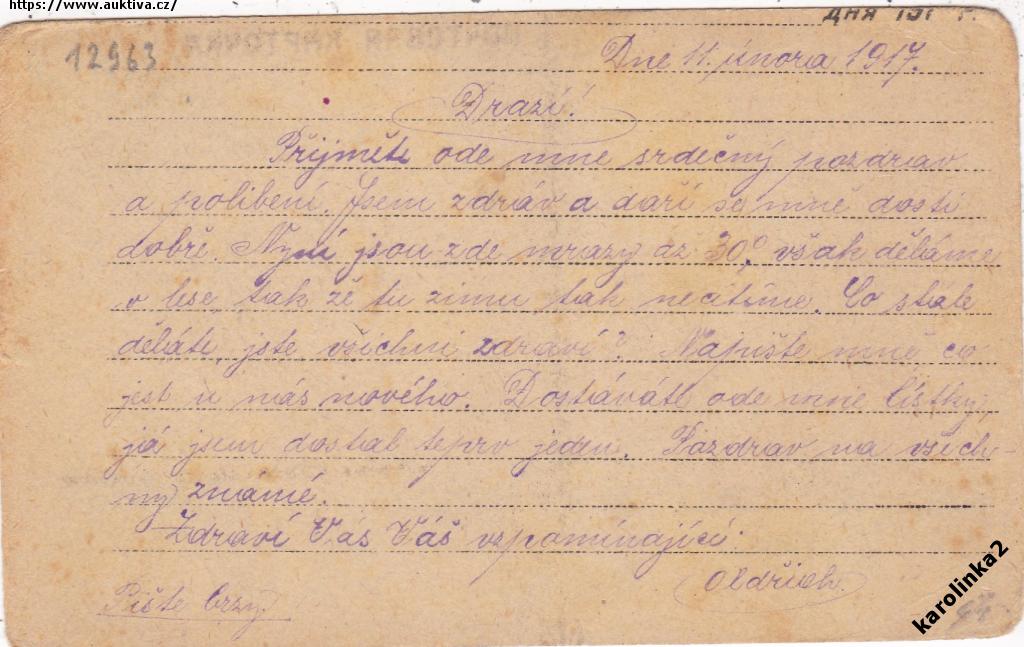 https://www.auktiva.cz/
дня 191 г.
12963
Dne 11. února 1917.
Drazí!
Přijměte ode mne srdečný pozdrav
a políbení. Jsem zdráv a daří se mně dosti
dobře. Nyní jsou zde mrazy až 30°, však děláme
v lese, tak že tu zimu tak necítíme. Co stále
děláte, jste všichni zdraví? Napište mně co
jest u nás nového. Dostáváte ode mne lístky,
já jsem dostal teprv jeden. Pozdrav na všech-
ny známé.
Zdraví Vás Váš vzpomínající
Oldřich.
Pište brzy.
karolinka2